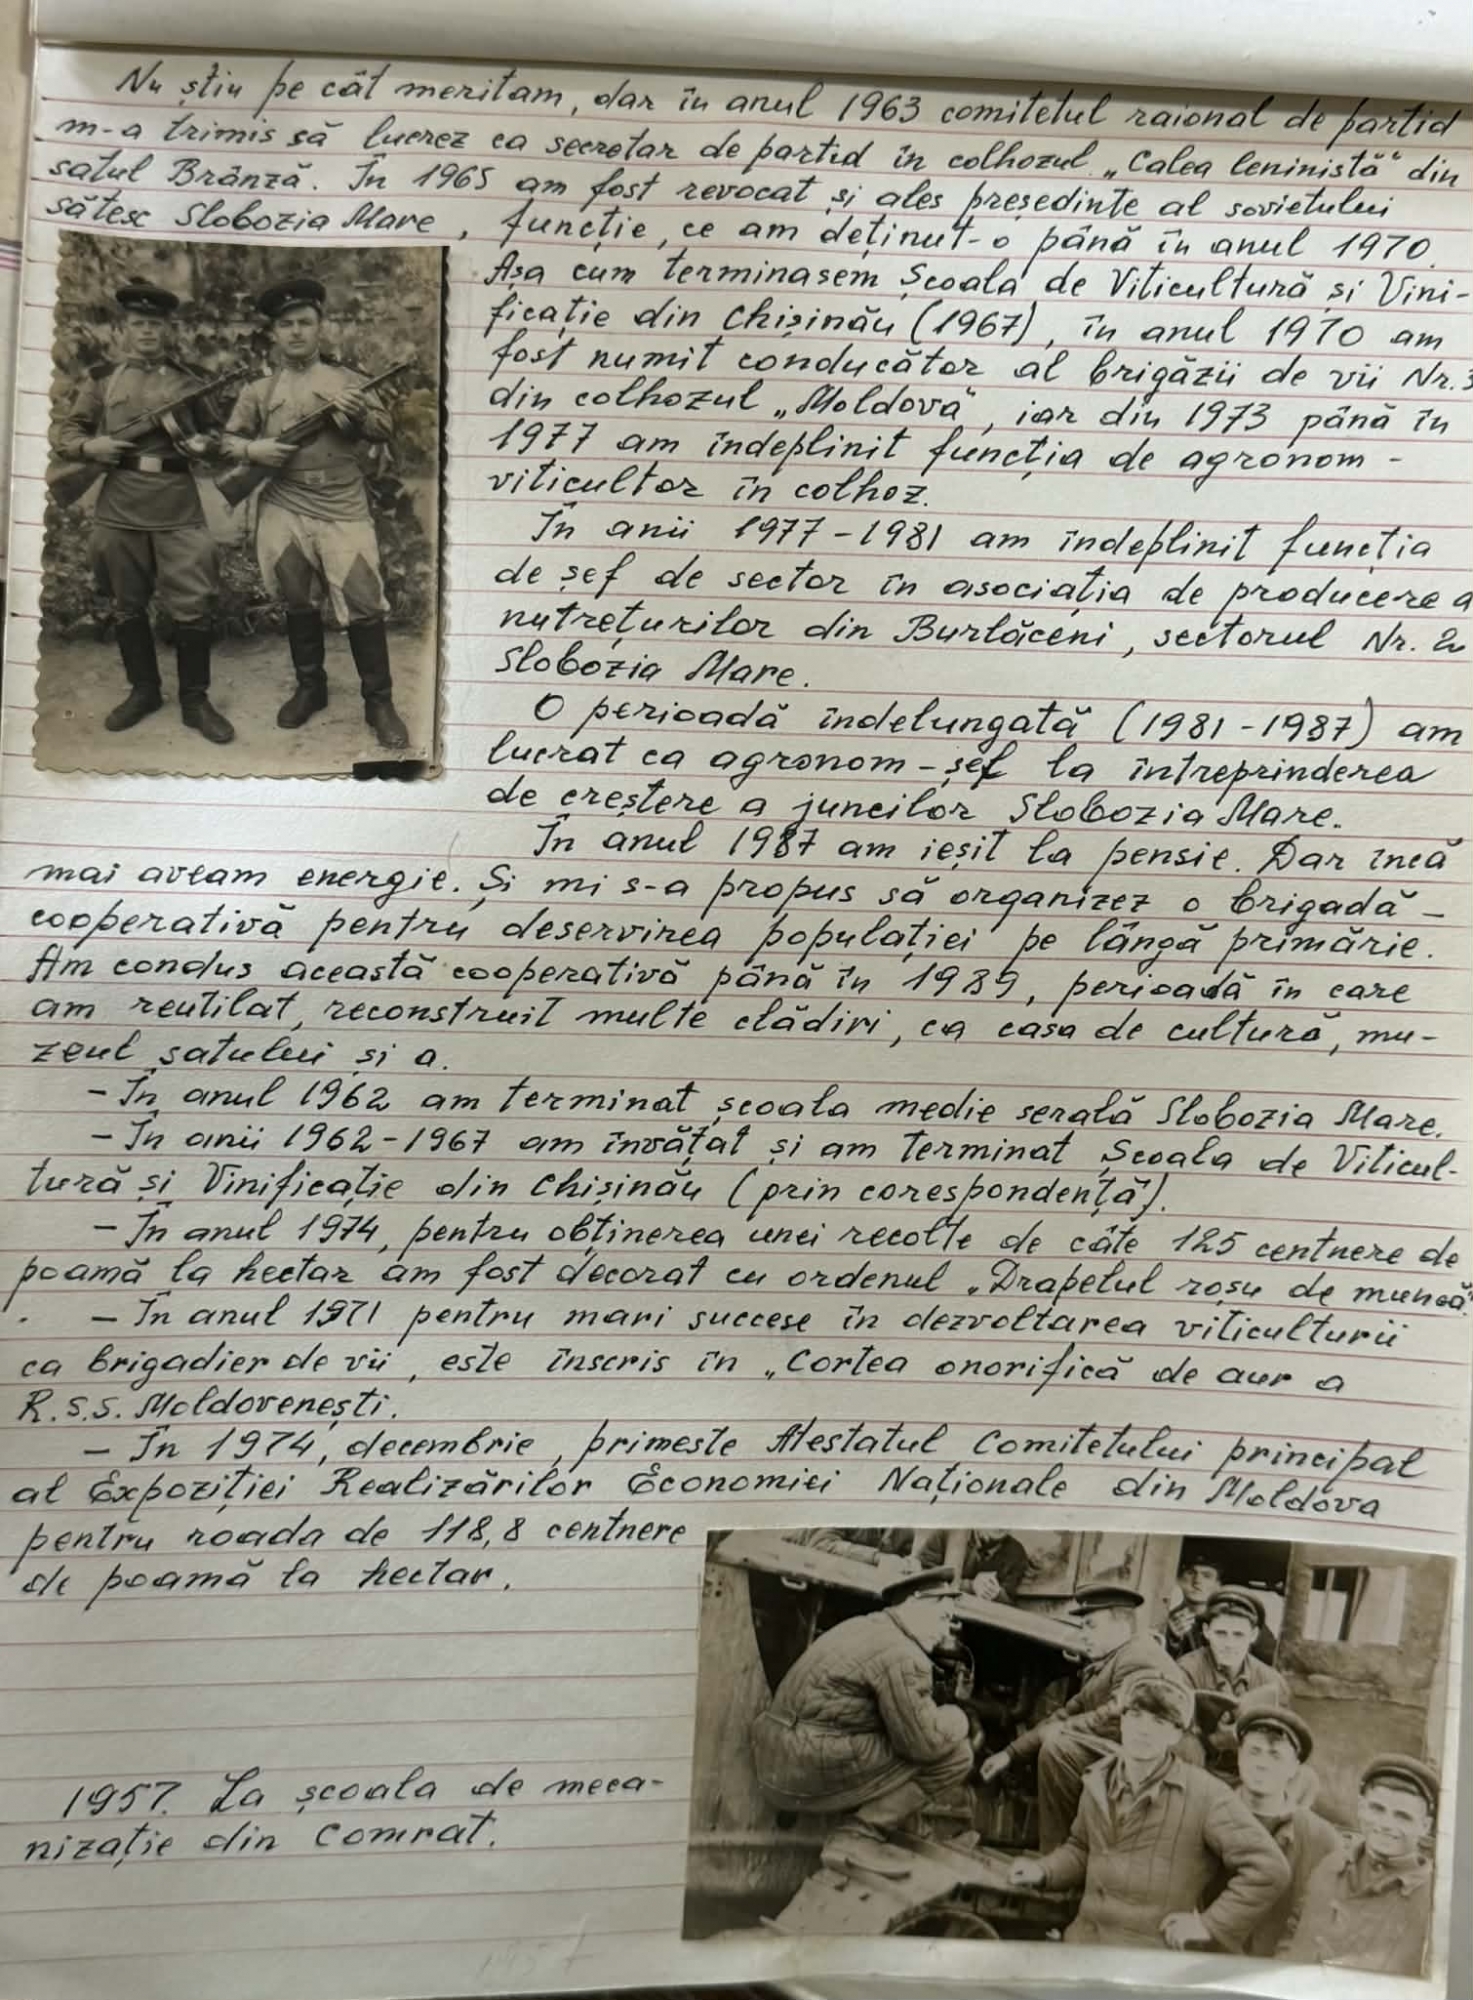 Nu știu pe cât meritam, dar în anul 1963 comitetul raional de partid
m-a trimis să lucrez ca secretar de partid în colhozul „Calea leninistă” din
satul Brânză. În 1965 am fost revocat și ales președinte al sovietului
sătesc Slobozia Mare, funcție, ce am deținut-o până în anul 1970.
Așa cum terminasem Școala de Viticultură și Vini-
ficație din Chișinău (1967), în anul 1970 am
fost numit conducător al brigăzii de vii Nr. 3
din colhozul „Moldova”, iar din 1973 până în
1977 am îndeplinit funcția de agronom-
viticultor în colhoz.
În anii 1977-1981 am îndeplinit funcția
de șef de sector în asociația de producere a
nutrețurilor din Burlăceni, sectorul Nr. 2
Slobozia Mare.
O perioadă îndelungată (1981-1987) am
lucrat ca agronom-șef la întreprinderea
de creștere a juncilor Slobozia Mare.
În anul 1987 am ieșit la pensie. Dar încă
mai aveam energie. Și mi s-a propus să organizez o brigadă-
cooperativă pentru deservirea populației pe lângă primărie.
Am condus această cooperativă până în 1989, perioadă în care
am reutilat, reconstruit multe clădiri, ca casa de cultură, mu-
zeul satului și a.
- În anul 1962 am terminat școala medie serală Slobozia Mare.
- În anii 1962-1967 am învățat și am terminat Școala de Viticul-
tură și Vinificație din Chișinău (prin corespondență).
- În anul 1974, pentru obținerea unei recolte de câte 125 centnere de
poamă la hectar am fost decorat cu ordenul „Drapelul roșu de muncă”.
- În anul 1971 pentru mari succese în dezvoltarea viticulturii
ca brigadier de vii, este înscris în „Cortea onorifică de aur a
R.S.S. Moldovenești.
- În 1974, decembrie, primește Atestatul Comitetului principal
al Expoziției Realizărilor Economiei Naționale din Moldova
pentru roada de 118,8 centnere
de poamă la hectar.
1957. La școala de meca-
nizație din Comrat.
1957